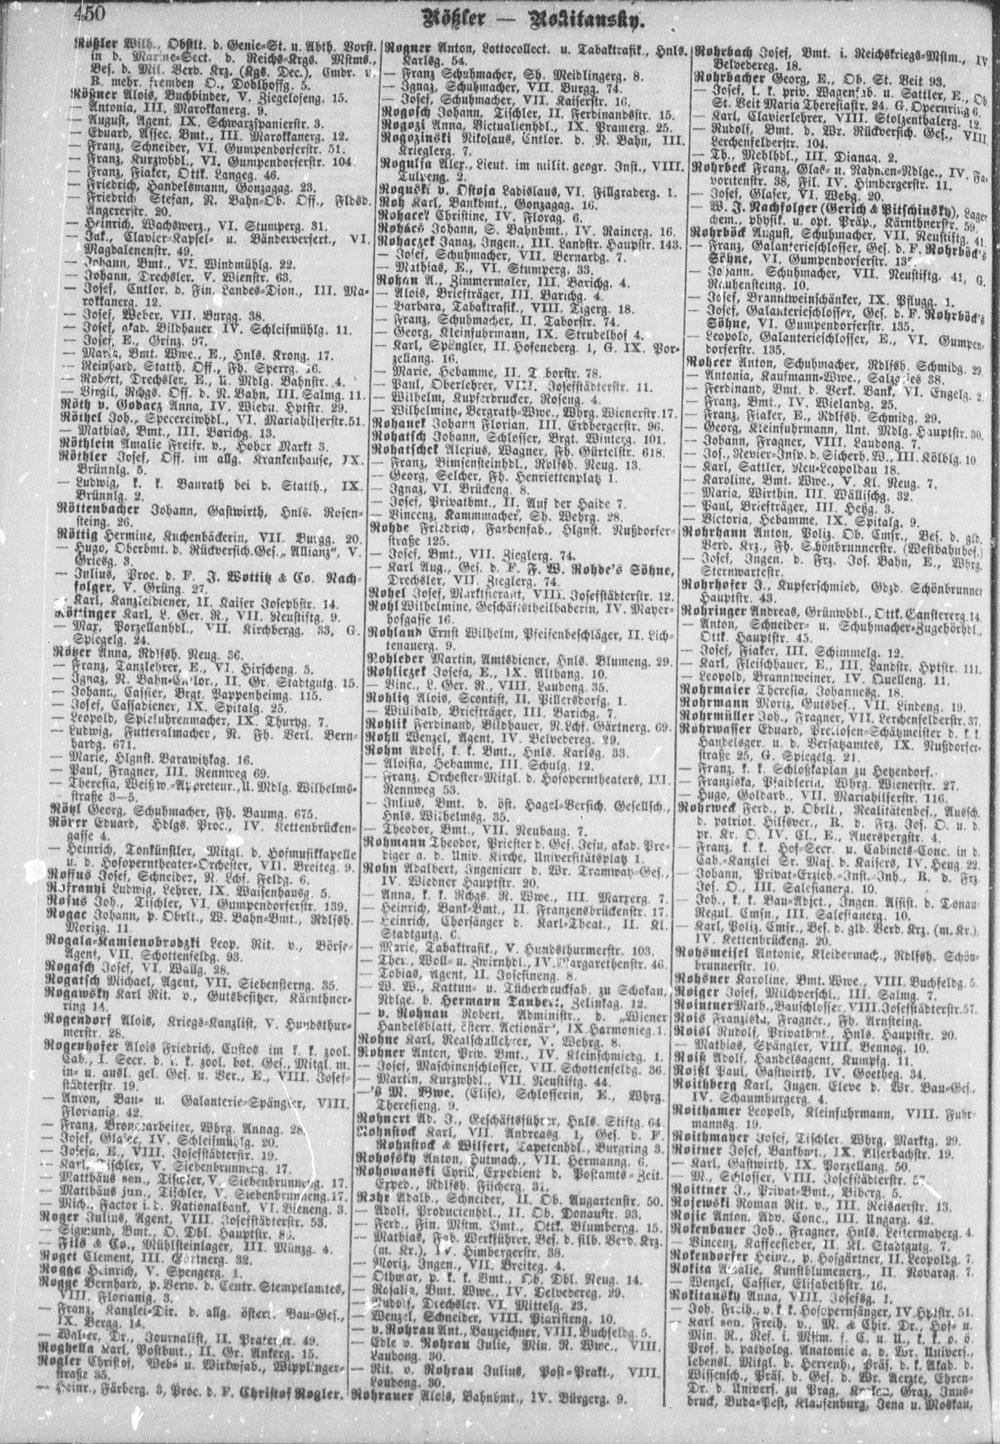 450
Rößler — Rokitansky.
Rößler Wilh., Obstlt. d. Genie-St. u. Abth. Vorst.
in d. Marine-Sect. d. Reichs-Krgs. Mstms.,
Bes. d. Mil. Verd. Krz. (Kgs. Dec.), Cmdr. v.
R. mehr. fremden O., Doblhoffg. 5.
Rößner Alois, Buchbinder, V. Ziegelofeng. 15.
— Antonia, III. Marokkanerg. 9.
— August, Agent, IX. Schwarzspanierstr. 3.
— Eduard, Assec. Bmt., III. Marokkanerg. 12.
— Franz, Schneider, VI. Gumpendorferstr. 51.
— Franz, Kurzwhdl., VI. Gumpendorferstr. 104.
— Franz, Fiaker, Ottk. Langeg. 46.
— Friedrich, Handelsmann, Gonzagag. 23.
— Friedrich Stefan, N. Bahn-Ob. Off., Fldsd.
Angererstr. 20.
— Heinrich, Wachswerz., VI. Stumperg. 31.
— Jak., Clavier-Kapsel- u. Bänderverfert., VI.
Magdalenenstr. 49.
— Johann, Bmt., VI. Windmühlg. 22.
— Johann, Drechsler, V. Wienstr. 63.
— Josef, Cntlor. d. Fin. Landes-Dion., III. Ma-
rokkanerg. 12.
— Josef, Weber, VII. Burgg. 38.
— Josef, akad. Bildhauer, IV. Schleifmühlg. 11.
— Josef, E., Grinz. 97.
— Marie, Bmt. Wwe., E., Hnls. Krong. 17.
— Reinhard, Statth. Off., Fh. Sperrg. 16.
— Robert, Drechsler, E., U. Mdlg. Bahnstr. 4.
— Virgil, Rchgs. Off. d. N. Bahn, III. Salmg. 11.
Röth v. Godacz Anna, IV. Wiedn. Hptstr. 29.
Röthel Joh., Specereiwhdl., VI. Mariahilferstr. 51.
— Mathias, Bmt., III. Barichg. 13.
Röthlein Amalie Freifr. v., Hoher Markt 3.
Röthler Josef, Off. im allg. Krankenhause, IX.
Brünnlg. 5.
— Ludwig, k. k. Baurath bei d. Statth., IX.
Brünnlg. 2.
Röttenbacher Johann, Gastwirth, Hnls. Rosen-
steing. 26.
Röttig Hermine, Kuchenbäckerin, VII. Burgg. 20.
— Hugo, Oberbmt. d. Rückversich. Ges. „Allianz", V.
Griesg. 3.
— Julius, Proc. d. F. J. Wottitz & Co. Nach-
folger, V. Grüng. 27.
— Karl, Kanzleidiener, II. Kaiser Josephstr. 14.
Röttinger Karl, L. Ger. R., VII. Neustiftg. 9.
— Max, Porzellanhdl., VII. Kirchbergg. 33, G.
Spiegelg. 24.
Rötzer Anna, Rdlfsh. Neug. 36.
— Franz, Tanzlehrer, E., VI. Hirscheng. 3.
— Ignaz, N. Bahn-Cntlor., II. Gr. Stadtgutg. 15.
— Johann, Cassier, Brgt. Pappenheimg. 115.
— Josef, Cassadiener, IX. Spitalg. 25.
— Leopold, Spieluhrenmacher, IX. Thuryg. 7.
— Ludwig, Futteralmacher, N. Fh. Verl. Bern-
hardg. 671.
— Marie, Hlgnst. Barawitzkag. 16.
— Paul, Fragner, III. Rennweg 69.
— Theresia, Weißw.-Appreteur., U. Mdlg. Wilhelms-
straße 3—5.
Rötzl Georg, Schuhmacher, Fh. Baumg. 675.
Rörer Eduard, Hdlgs. Proc., IV. Kettenbrücken-
gasse 4.
— Heinrich, Tonkünstler, Mitgl. d. Hofmusikkapelle
u. d. Hofoperntheater-Orchester, VII. Breiteg. 9.
Roffus Josef, Schneider, N. Lchf. Feldg. 6.
Rofranyi Ludwig, Lehrer, IX. Waisenhausg. 5.
Rofus Joh., Tischler, VI. Gumpendorferstr. 139.
Rogac Johann, p. Obrlt., W. Bahn-Bmt., Rdlfsh.
Morizg. 11.
Rogala-Kamienobrodzki Leop. Rit. v., Börse-
Agent, VII. Schottenfeldg. 93.
Rogasch Josef, VI. Wallg. 28.
Rogatsch Michael, Agent, VII. Siebensterng. 35.
Rogawsky Karl Rit. v., Gutsbesitzer, Kärnthner-
ring 14.
Rogendorf Alois, Kriegs-Kanzlist, V. Hundsthur-
merstr. 28.
Rogenhofer Alois Friedrich, Custos im k. k. zool.
Cab., I. Secr. d. k. k. zool. bot. Ges., Mitgl. m.
in- u. ausl. gel. Ges. u. Ver., E., VIII. Josef-
städterstr. 19.
— Anton, Bau- u. Galanterie-Spängler, VIII.
Florianig. 42.
— Franz, Bronzearbeiter, Whrg. Annag. 28.
— Josef, Glaser, IV. Schleifmühlg. 20.
— Josefa, E., VIII. Josefstädterstr. 19.
— Karl, Tischler, V. Siebenbrunneng. 17.
— Matthäus sen., Tischler, V. Siebenbrunneng. 17.
— Matthäus jun., Tischler, V. Siebenbrunneng. 17.
— Mich., Factor i. d. Nationalbank, VI. Bieneng. 3.
Roger Julius, Agent, VIII. Josefstädterstr. 53.
— Sigmund, Bmt., O. Dbl. Hauptstr. 86.
— Fils & Co., Mühlsteinlager, III. Münzg. 4.
Roget Clement, III. Gärtnerg. 32.
Rogga Heinrich, V. Spengerg. 1.
Rogge Bernhard, p. Verw. d. Centr. Stempelamtes,
VIII. Florianig. 3.
— Franz, Kanzlei-Dir. d. allg. österr. Bau-Ges.,
IX. Bergg. 14.
— Walter, Dr., Journalist, II. Praterstr. 49.
Roghella Karl, Postbmt., II. Gr. Ankerg. 15.
Rogler Christof, Web- u. Wirkwfab., Wipplinger-
straße 35.
— Heinr., Färberg. 3, Proc. d. F. Christof Rogler.
Rogner Anton, Lottocollect. u. Tabaktrafik., Hnls.
Karlsg. 54.
— Franz Schuhmacher, Sh. Meidlingerg. 8.
— Ignaz, Schuhmacher, VII. Burgg. 74.
— Josef, Schuhmacher, VII. Kaiserstr. 16.
Rogosch Johann, Tischler, II. Ferdinandsstr. 15.
Rogozi Anna, Victualienhdl., IX. Pramerg. 25.
Rogozinski Nikolaus, Cntlor. d. N. Bahn, III.
Krieglerg. 7.
Rogulsa Alex., Lieut. im milit. geogr. Inst., VIII.
Tulpeng. 2.
Roguski v. Ostoja Ladislaus, VI. Fillgraderg. 1.
Roh Karl, Bankbmt., Gonzagag. 16.
Rohacet Christine, IV. Florag. 6.
Roháes Johann, S. Bahnbmt., IV. Rainerg. 16.
Rohaczek Janaz, Ingen., III. Landstr. Hauptstr. 143.
— Josef, Schuhmacher, VII. Bernardg. 7.
— Mathias, E., VI. Stumperg. 33.
Rohan A., Zimmermaler, III. Barichg. 4.
— Alois, Briefträger, III. Barichg. 4.
— Barbara, Tabaktrafik., VIII. Tigerg. 18.
— Franz, Schuhmacher, II. Taborstr. 74.
— Georg, Kleinfuhrmann, IX. Strudelhof 4.
— Karl, Spängler, II. Hofenederg. 1, G. IX. Por-
zellang. 16.
— Marie, Hebamme, II. Taborstr. 78.
— Paul, Oberlehrer, VIII. Josefstädterstr. 11.
— Wilhelm, Kupferdrucker, Roseng. 4.
— Wilhelmine, Bergrath-Wwe., Whrg. Wienerstr. 17.
Rohanek Johann Florian, III. Erdbergerstr. 96.
Rohatsch Johann, Schlosser, Brgt. Winterg. 101.
Rohatschek Alexius, Wagner, Fh. Gürtelstr. 618.
— Franz, Bimsensteinhdl., Rdlfsh. Neug. 13.
— Georg, Selcher, Fh. Henriettenplatz 1.
— Ignaz, VI. Brückeng. 8.
— Josef, Privatbmt., II. Auf der Haide 7.
— Vincenz, Kammmacher, Sh. Wehrg. 28.
Rohde Friedrich, Farbenfab., Hlgnst. Nußdorfer-
straße 125.
— Josef, Bmt., VII. Zieglerg. 74.
— Karl Aug., Ges. d. F. F. W. Rohde's Söhne,
Drechsler, VII. Zieglerg. 74.
Rohel Josef, Marktfierant, VIII. Josefstädterstr. 12.
Rohl Wilhelmine, Geschäftstheilhaberin, IV. Mayer-
hofgasse 16.
Rohland Ernst Wilhelm, Pfeifenbeschläger, II. Lich-
tenauerg. 9.
Rohleder Martin, Amtsdiener, Hnls. Blumeng. 29.
Rohliczek Josefa, E., IX. Althang. 10.
— Vinc., L. Ger. R., VIII. Laudong. 35.
Rohlig Alois, Scontist, II. Pillersdorfg. 1.
— Wilibald, Briefträger, III. Barichg. 7.
Rohlik Ferdinand, Bildhauer, N. Lchf. Gärtnerg. 69.
Rohll Wenzel, Agent, IV. Belvedereg. 29.
Rohm Adolf, k. k. Bmt., Hnls. Karlsg. 33.
— Aloisia, Hebamme, III. Schulg. 12.
— Franz, Orchester-Mitgl. d. Hofoperntheaters, III.
Rennweg 53.
— Julius, Bmt. d. öst. Hagel-Versich. Gesellsch.,
Hnls. Wilhelmsg. 35.
— Theodor, Bmt., VII. Neubaug. 7.
Rohmann Theodor, Priester d. Ges. Jesu, akad. Pre-
diger a. d. Univ. Kirche, Universitätsplatz 1.
Rohn Adalbert, Ingenieur d. Wr. Tramway-Ges.,
IV. Wiedner Hauptstr. 20.
— Anna, k. k. Rchgs. R. Wwe., III. Marxerg. 7.
— Heinrich, Bank-Bmt., II. Franzensbrückenstr. 17.
— Heinrich, Chorsänger d. Karl-Theat., II. Kl.
Stadtgutg. 6.
— Marie, Tabaktrafik., V. Hundsthurmerstr. 103.
— Ther., Woll- u. Zwirnhdl., IV. Margarethenstr. 46.
— Tobias, Agent, II. Josefineng. 8.
— W. W., Kattun- u. Tücherdruckfab. zu Schokau,
Ndlge. b. Hermann Taubert, Zelinkag. 12.
— v. Rohnau Robert, Administr. d. „Wiener
Handelsblatt, österr. Actionär", IX. Harmonieg. 1.
Rohne Karl, Realschullehrer, V. Wehrg. 8.
Rohner Anton, Priv. Bmt., IV. Kleinschmiedg. 1.
— Josef, Maschinenschlosser, VII. Schottenfeldg. 36.
— Martin, Kurzwhdl., VII. Neustiftg. 44.
—'s M. Wwe. (Elise), Schlosserin, E., Whrg.
Theresieng. 9.
Rohnert Ad. J., Geschäftsführer, Hnls. Stiftg. 64.
Rohnstock Karl, VII. Andreasg. 1, Ges. d. F.
Rohnstock & Wilfert, Tapetenhdl., Burgring 3.
Rohofsky Anton, Hutmach., VII. Hermanng. 6.
Rohowanski Cyrill, Expedient d. Postamts-Zeit.
Exped., Rdlfsh. Fischerg. 31.
Rohr Adalb., Schneider, II. Ob. Augartenstr. 50.
— Adolf, Producienhdl., II. Ob. Donaustr. 93.
— Ferd., Fin. Mstm. Bmt., Ottk. Blumbergg. 15.
— Mathias, Fab. Werkführer, Bes. d. silb. Verd. Krz.
(m. Kr.), IV. Himbergerstr. 38.
— Moriz, Ingen., VII. Breiteg. 4.
— Othmar, p. k. k. Bmt., Ob. Dbl. Neug. 14.
— Rosalia, Bmt. Wwe., IV. Belvedereg. 29.
— Rudolf, Drechsler, VI. Mittelg. 23.
— Wenzel, Schneider, VIII. Piaristeng. 10.
— v. Rohrau Ant., Bauzeichner, VIII. Buchfeldg. 5.
— Edle v. Rohrau Julie, Min. R. Wwe., VIII.
Laudong. 30.
— Rit. v. Rohrau Julius, Post-Prakt., VIII.
Loudong. 30.
Rohrauer Alois, Bahnbmt., IV. Bürgerg. 9.
Rohrbach Josef, Bmt. i. Reichskriegs-Mstm., IV.
Belvedereg. 18.
Rohrbacher Georg, E., Ob. St. Veit 93.
— Josef, k. k. priv. Wagenfab. u. Sattler, E., Ob.
St. Veit Maria Theresiastr. 24, G. Opernring 6.
— Karl, Clavierlehrer, VIII. Stolzenthalerg. 12.
— Rudolf, Bmt. d. Wr. Rückversich. Ges., VIII.
Lerchenfelderstr. 104.
— Th., Mehlhdl., III. Dianag. 2.
Rohrbeck Franz, Glas- u. Rahmen-Ndlge., IV. Fa-
voritenstr. 38, Fil. IV. Himbergerstr. 11.
— Josef, Glaser, VI. Webg. 20.
— W. J. Nachfolger (Gerich & Pitschinsky), Lager
chem., physik. u. opt. Präp., Kärnthnerstr. 59.
Rohrböck August, Schuhmacher, VII. Neustiftg. 41.
— Franz, Galanterieschlosser, Ges. d. F. Rohrböck's
Söhne, VI. Gumpendorferstr. 135.
— Johann, Schuhmacher, VII. Neustiftg. 41, G.
Neuhensteing. 10.
— Josef, Branntweinschänker, IX. Pflugg. 1.
— Josef, Galanterieschlosser, Ges. d. F. Rohrböck's
Söhne, VI. Gumpendorferstr. 135.
— Leopold, Galanterieschlosser, E., VI. Gumpen-
dorferstr. 135.
Rohrer Anton, Schuhmacher, Rdlfsh. Schmidg. 29.
— Antonia, Kaufmann-Wwe., Salzgries 38.
— Ferdinand, Bmt. d. Verk. Bank, VI. Engelg. 2.
— Franz, Bmt., IV. Wielandg. 25.
— Franz, Fiaker, E., Rdlfsh. Schmidg. 29.
— Georg, Kleinfuhrmann, Unt. Mdlg. Hauptstr. 30.
— Johann, Fragner, VIII. Laudong. 7.
— Jos., Revier-Insp. d. Sicherh. W., III. Kölblg. 10.
— Karl, Sattler, Neu-Leopoldau 18.
— Karoline, Bmt. Wwe., V. Kl. Neug. 7.
— Maria, Wirthin, III. Wällischg. 32.
— Paul, Briefträger, III. Hetzg. 3.
— Victoria, Hebamme, IX. Spitalg. 9.
Rohrhann Anton, Poliz. Ob. Cmsr., Bes. d. gld.
Verd. Krz., Fh. Schönbrunnerstr. (Westbahnhof.)
— Josef, Ingen. d. Frz. Jos. Bahn, E., Whrg.
Sternwartestr.
Rohrhofer J., Kupferschmied, Gdzd. Schönbrunner
Hauptstr. 43.
Rohringer Andreas, Grünwhdl., Ottk. Gansterерg. 14.
— Anton, Schneider- u. Schuhmacher-Zugehörhdl.,
Ottk. Hauptstr. 45.
— Josef, Fiaker, III. Schimmelg. 12.
— Karl, Fleischhauer, E., III. Landstr. Hptstr. 111.
— Leopold, Branntweiner, IV. Quelleng. 11.
Rohrmaier Theresia, Johannesg. 18.
Rohrmann Moriz, Gutsbes., VII. Lindeng. 19.
Rohrmüller Joh., Fragner, VII. Lerchenfelderstr. 37.
Rohrwasser Eduard, Pretiosen-Schätzmeister d. k. k.
Handelsger. u. d. Versatzamtes, IX. Nußdorfer-
straße 25, G. Spiegelg. 21.
— Franz, k. k. Schloßkaplan zu Hetzendorf.
— Franziska, Pfaidlerin, Whrg. Wienerstr. 27.
— Hugo, Goldarb., VII. Mariahilferstr. 116.
Rohrweck Ferd., p. Obrlt., Realitätenbes., Aussch.
d. patriot. Hilfsver., R. d. Frz. Jos. O. u. d.
pr. Kr. O. IV. Cl., E., Auerspergstr. 4.
— Franz, k. k. Hof-Secr. u. Cabinets-Conc. in d.
Cab.-Kanzlei Sr. Maj. d. Kaisers, IV. Heug. 22.
— Johann, Privat-Erzieh.-Inst.-Inh., R. d. Frz.
Jos. O., III. Salesianerg. 10.
— Joh., k. k. Bau-Adjct., Ingen. Assist. d. Donau-
Regul. Cmsn., III. Salesianerg. 10.
— Karl, Poliz. Cmsr., Bes. d. gld. Verd. Krz. (m. Kr.),
IV. Kettenbrückeng. 20.
Rohsmeisel Antonie, Kleidermach., Rdlfsh. Schön-
brunnerstr. 10.
Rohsner Karoline, Bmt. Wwe., VIII. Buchfeldg. 5.
Roiger Josef, Milchverschl., III. Salmg. 7.
Rointner Math., Bauschlosser, VIII. Josefstädterstr. 57.
Rois Franziska, Fragner, Fh. Arnsteing.
Roisl Rudolf, Privatbmt., Hnls. Hauptstr. 20.
— Mathias, Spängler, VIII. Bennog. 10.
Roiß Adolf, Handelsagent, Kumpfg. 11.
Roißl Paul, Gastwirth, IV. Goetheg. 34.
Roithberg Karl, Ingen. Eleve d. Wr. Bau-Ges.,
IV. Schaumburgerg. 4.
Roithamer Leopold, Kleinfuhrmann, VIII. Fuhr-
mannsg. 19.
Roithmayer Josef, Tischler, Whrg. Marktg. 29.
Roitner Josef, Bankbmt., IX. Alserbachstr. 19.
— Karl, Gastwirth, IX. Porzellang. 50.
— M., Schlosser, VIII. Josefstädterstr. 57.
Roittner J., Privat-Bmt., Biberg. 5.
Rojewski Roman Rit. v., III. Reisnerstr. 13.
Rojic Anton, Adv. Conc., III. Ungarg. 42.
Rokenbauer Joh., Fragner, Hnls. Leitermayerg. 4.
— Vincenz, Kaffeesieder, II. Kl. Stadtgutg. 7.
Rokendorfer Heinr., p. Hofgärtner, II. Leopoldg. 7.
Rokita Amalie, Kunstblumenerz., II. Novarag. 7.
— Wenzel, Cassier, Elisabethstr. 16.
Rokitansky Anna, VIII. Josefsg. 1.
— Joh. Freih. v., k. k. Hofopernsänger, IV. Hptstr. 51.
— Karl sen. Freih. v., M. & Chir. Dr., Hof- u.
Min. R., Ref. i. Mstm. f. C. u. U., k. k. o. ö.
Prof. d. patholog. Anatomie a. d. Wr. Univers.,
lebensl. Mitgl. d. Herrenh., Präs. d. k. Akad. d.
Wissensch., Präs. d. Ges. d. Wr. Aerzte, Ehren-
Dr. d. Univers. zu Prag, Krakau, Graz, Inns-
bruck, Buda-Pest, Klausenburg, Jena u. Moskau,